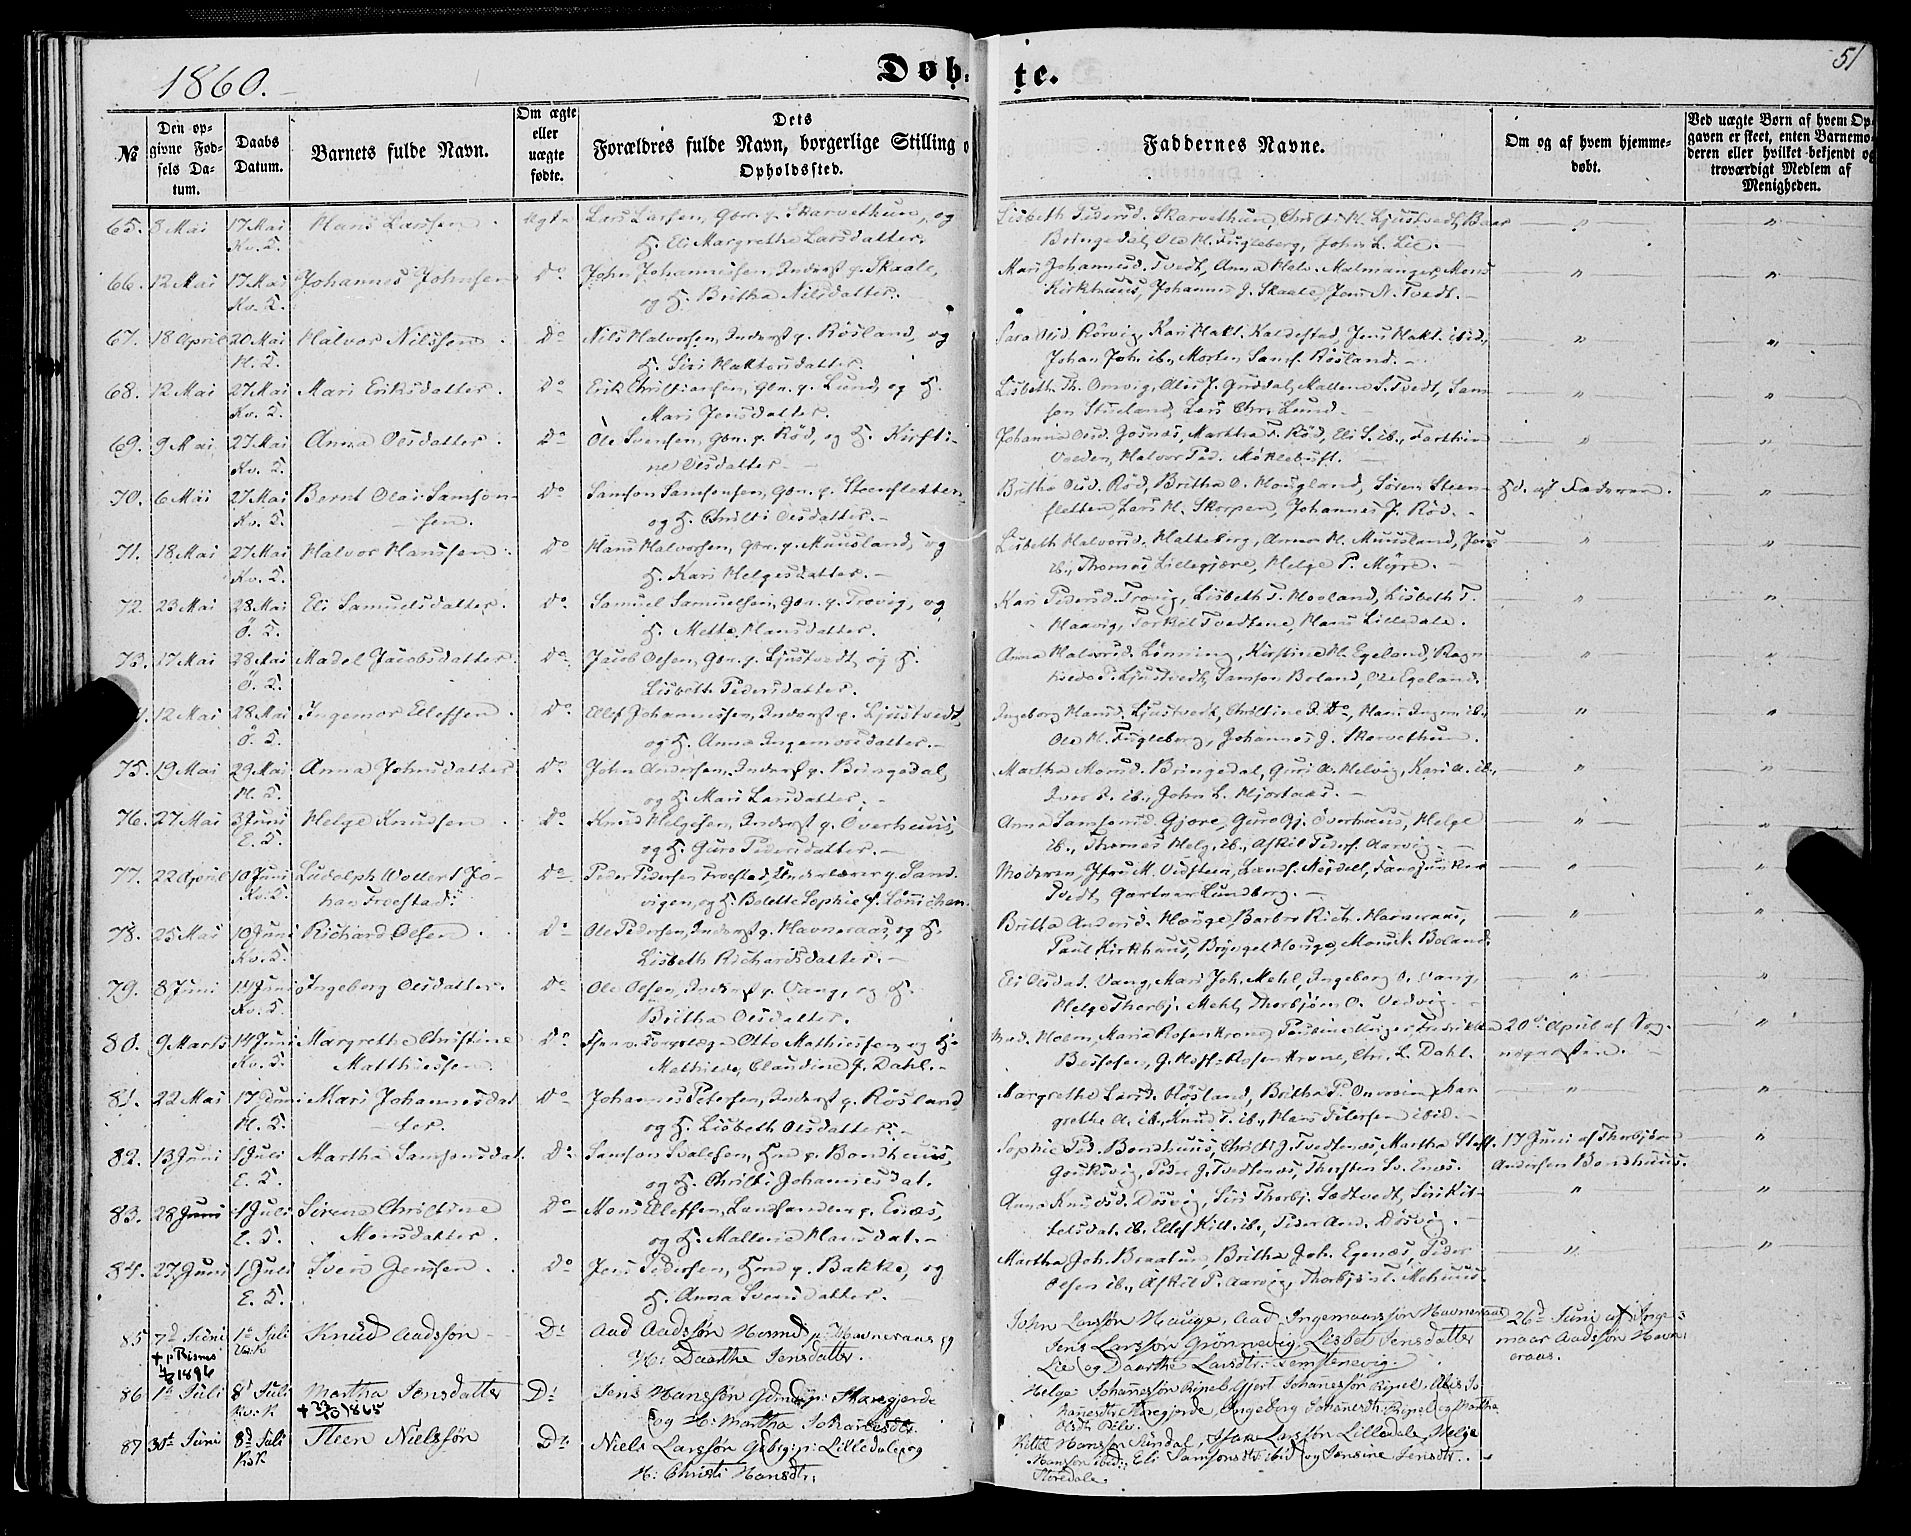 1860.
Døb-
te.
51
№
Den op-
givne Fød-
sels Da-
tum.
Daabs
Datum.
Barnets fulde Navn.
Om ægte
eller
uægte
fødte.
Dets
Forældres fulde Navn, borgerlige Stilling o
Opholdssted.
Faddernes Navne.
Om og af hvem hjemme-
døbt.
Ved uægte Børn af hvem Op-
gaven er skeet, enten Barnemo-
deren eller hvilket bekjendt og
troværdigt Medlem af
Menigheden.
65. 8 Mai 17 Mai Hans Larssen. Ægte Lars Larsen, Gbr. p. Skarvethun, og
Kv. K. H. Eli Margrethe Larsdatter.
Lisbeth Pedersd. Skarvethun, Christi H. Ljustvedt, Baar
Bringedal, Ole H. Fugleberg, John L. Lie.
66. 12 Mai 17 Mai Johannes Johnsen D° John Johannessen, Inderst p. Skaale,
Kv. K. og H. Britha Nilsdatter.
Mari Johannesd. Tvedt, Anna Helv. Malmanger, Mons
Kirkhuus, Johannes J. Skaale, Jens N. Tvedt.
67. 18 April 20 Mai Halvor Nilssen D° Nils Halvorsen, Inderst p. Røsland, og
H. K. H. Siri Haktorsdatter.
Sara Olsd. Rørvig, Kari Hakt. Kaldestad, Jens Hakt. ibid,
Johan Joh. ib., Morten Sams. Røsland.
68. 12 Mai 27 Mai Mari Eriksdatter. D° Erik Christiansen, Gbr. p. Lund, og H.
Kv. K. Mari Jensdatter.
Lisbeth Th. Omvig, Alis J. Guddal, Mallene S. Tvedt, Sam-
son Stueland, Lars Chr. Lund.
69. 9 Mai 27 Mai Anna Olsdatter. D° Ole Svensen, Gbr. p. Rød, og H. Kirsti-
Kv. K. ne Olsdatter.
Johanna Olsd. Gosnæs, Martha T. Rød, Eli S. ib., Torthin
Valden, Halvor Ped. Møklebust.
70. 6 Mai 27 Mai Bernt Olai Samson- D° Samson Samsonsen, Gbr. p. Steensletten,
Kv. K. sen. og H. Christi Olsdatter.
Britha Olsd. Rød, Britha O. Hougland, Søren Steen-
sletten Lars H. Skorpen, Johannes J. Rød.
Hd. af Faderen.
71. 18 Mai 27 Mai Halvor Hanssen D° Hans Halvorsen, Gbr. p. Muusland, og
Kv. K. H. Kari Helgesdatter.
Lisbeth Halvorsd. Hatteberg, Anna H. Muusland, Jens
ib., Thomas Lillegjære, Helge P. Myre.
72. 23 Mai 28 Mai Eli Samuelsdatter. D° Samuel Samuelsen, Gbr. p. Trovig, og
Ö. K. H. Mette Hansdatter.
Kari Pedersd. Trovig, Lisbeth T. Hovland, Lisbeth T.
Haavig, Torkil Tvedtene, Hans Lilledale.
73. 17 Mai 28 Mai Madel Jacobsdatter D° Jacob Olsen, Gbr. p. Ljustvedt, og H.
Ö. K. Lisbeth Pedersdatter.
Anna Halvorsd. Lønning, Kirstine H. Egeland, Ragn-
hilde P. Ljustvedt, Samson Boland, Ole Egeland.
12 Mai 28 Mai Ingemor Ellefsen. D° Ellef Johannessen, Inderst p. Ljustvedt,
Ö. K. og H. Anna Ingemorsdatter.
Ingeborg Hansd. Ljustvedt, Christine I. D°, Hans Ingem. ib.,
Ole H. Fugleberg, Johannes J. Skarvethun.
75. 19 Mai 29 Mai Anna Johnsdatter D° John Andersen, Inderst p. Bringedal,
H. K. og H. Mari Larsdatter.
Martha Monsd. Bringedal, Guri A. Helvig, Kari A. ib.,
Iver I. ib., John L. Hjortnæs.
76. 27 Mai 3 Juni Helge Knudsen D° Knud Helgesen, Inderst p. Overhuus,
E. K. og H. Guro Pedersdatter.
Anna Samsonsd. Gjære, Guro Gj. Overhuus, Helge
ib., Thomas Helg. ib., Askil Peders. Aarvig.
77. 22 April 10 Juni Ludolph Wollert Jo- D° Peder Pedersen Froestad, Underlærer p. Sand-
Kv. K. han Froestad. vigen, og H. Bolette Sophie f. Lønnichen.
Moderen, Jfru M. Vidsteen, Landf. Mejdell, Fangjunker
Tvedt, Gartner Lundberg.
78. 25 Mai 10 Juni Richard Olsen D° Ole Pedersen, Inderst p. Havneraas, og H.
Kv. K. Lisbeth Richardsdatter.
Britha Andersd. Houge, Barbro Rich. Havneraas,
Paul Kirkhuus, Bryngel Houge, Mons K. Boland.
79. 8 Juni 14 Juni Ingeborg Olsdatter. D° Ole Olsen, Inderst p. Vang, og H.
Kv. K. Britha Olsdatter.
Eli Olsdat. Vang, Mari Joh. Mehl, Ingeborg O. Vang,
Helge Thorbj. Mehl, Thorbjørn O. Vedvig.
80. 9 Marts 14 Juni Margrethe Christine D° Corpslæge Otto Mathiessen, og H.
Kv. K. Matthiessen. Mathilde Claudine f. Dahl.
Mad. Holm, Maria Rosenkrone, Pauline Fredrikke
J. Hoff-Rosenkrone, Chr. L. Dahl.
20de April af Sog-
nepræsten.
81. 22 Mai 17 Juni Mari Johannesdat- D° Johannes Petersen, Inderst p. Røsland
H. K. ter. og H. Lisbeth Olsdatter.
Margrethe Larsd. Røsland, Britha P. Mar-
grethe A. ib., Knud T. ib., Hans Petersen ibid.
82. 13 Juni 1 Juli Martha Samsonsdat. D° Samson Svalesen, Hmd p. Bondhuus,
E. K. og H. Christi Johannesdat.
Sophie Ped. Bondhuus, Christi J. Tvedtnæs, Martha Steff.
Gouksvig, Peder J. Tvedtnæs, Thorsten Sv. Enæs.
17 Juni af Thorbjørn
Andersen Bondhuus.
83. 28 Juni 1 Juli Sirena Christine D° Mons Ellefsen, Landhandler p. Enæs,
E. K. Monsdatter. og H. Mallena Hansdat.
Anna Knudsd. Døsvig, Siri Thorbj. Sætvedt, Siri Kit-
telsdat. ib. Ellef Kitt. ib., Peder And. Døsvig.
84. 27 Juni 1 Juli Svein Jenssen. D° Jens Pedersen, Hmd p. Bakke, og
E. K. H. Anna Svensdatter.
Martha Joh. Braatun, Britha Joh. Egenæs, Peder
Olsen ib., Askil P. Aarvig, Thorbjørn T. Mehuus.
85 7d Juni 1st Juli Knud Aadssøn D° Aad Aadssøn Hosmd p: Havneraas og
+ p Risnes Un: K H: Daarthe Jensdatter.
1896
John Larssøn Hauge, Aad Ingemaarssøn Havneraas
Jens Larssøn Grønnevig, Lisbet Jensdatter
Lie og Daarthe Larsdtr: Femstenevig.
26d Juni af Inge-
maar Aadssøn Havne-
eraas.
86 1st Juli 8d Juli Martha Jensdatter D° Jens Hanssøn Gaardm: p: Staregjerde
Kv: K + 1865 og H: Martha Johanesdtr.
Helge Johanessøn Ripel, Gjert Johanessøn Ripel, Alis Jo-
hanesdtr Staregjerde, Ingeborg Johanesdtr: Ripel og Martha
Olsdtr Ripel.
87 30st Juni 8d Juli Steen Nielssøn D° Niels Larssøn Gbrg: p: Lilledale og
KsK H: Christi Hansdtr:
Kittel Hanssøn Sundal, Isak Larssøn Lilledale, Helje
Hanssøn ibid:, Eli Samsonsdtr ibid og Jensine Jensdtr.
Storedale.